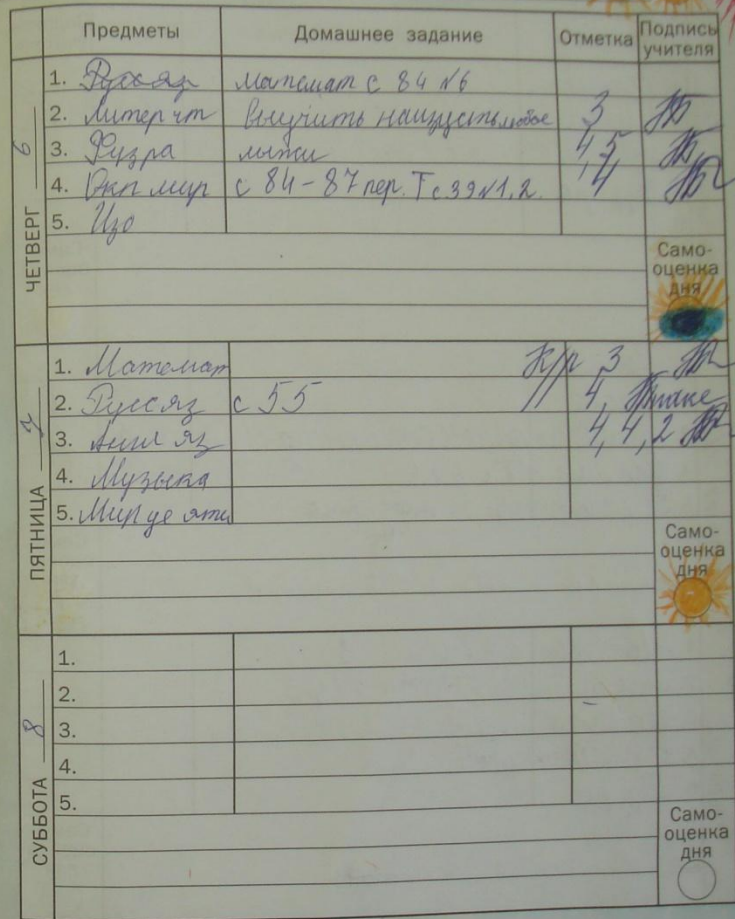 Предметы Домашнее задание Отметка Подпись учителя
ЧЕТВЕРГ 6
1. Русс яз математ с 84 №6
2. Литер чт Выучить наизусть любое 3
3. Физра лыжи 4, 5
4. Окр мир с 84-87 пер. Т с 39 №1,2. 4
5. Изо
Само-
оценка
дня
ПЯТНИЦА 7
1. Математ К/р 3
2. Русс яз с 55 4,
3. Англ яз 4, 4, 2
4. Музыка
5. Мир де яти
Само-
оценка
дня
СУББОТА 8
1.
2.
3.
4.
5.
Само-
оценка
дня